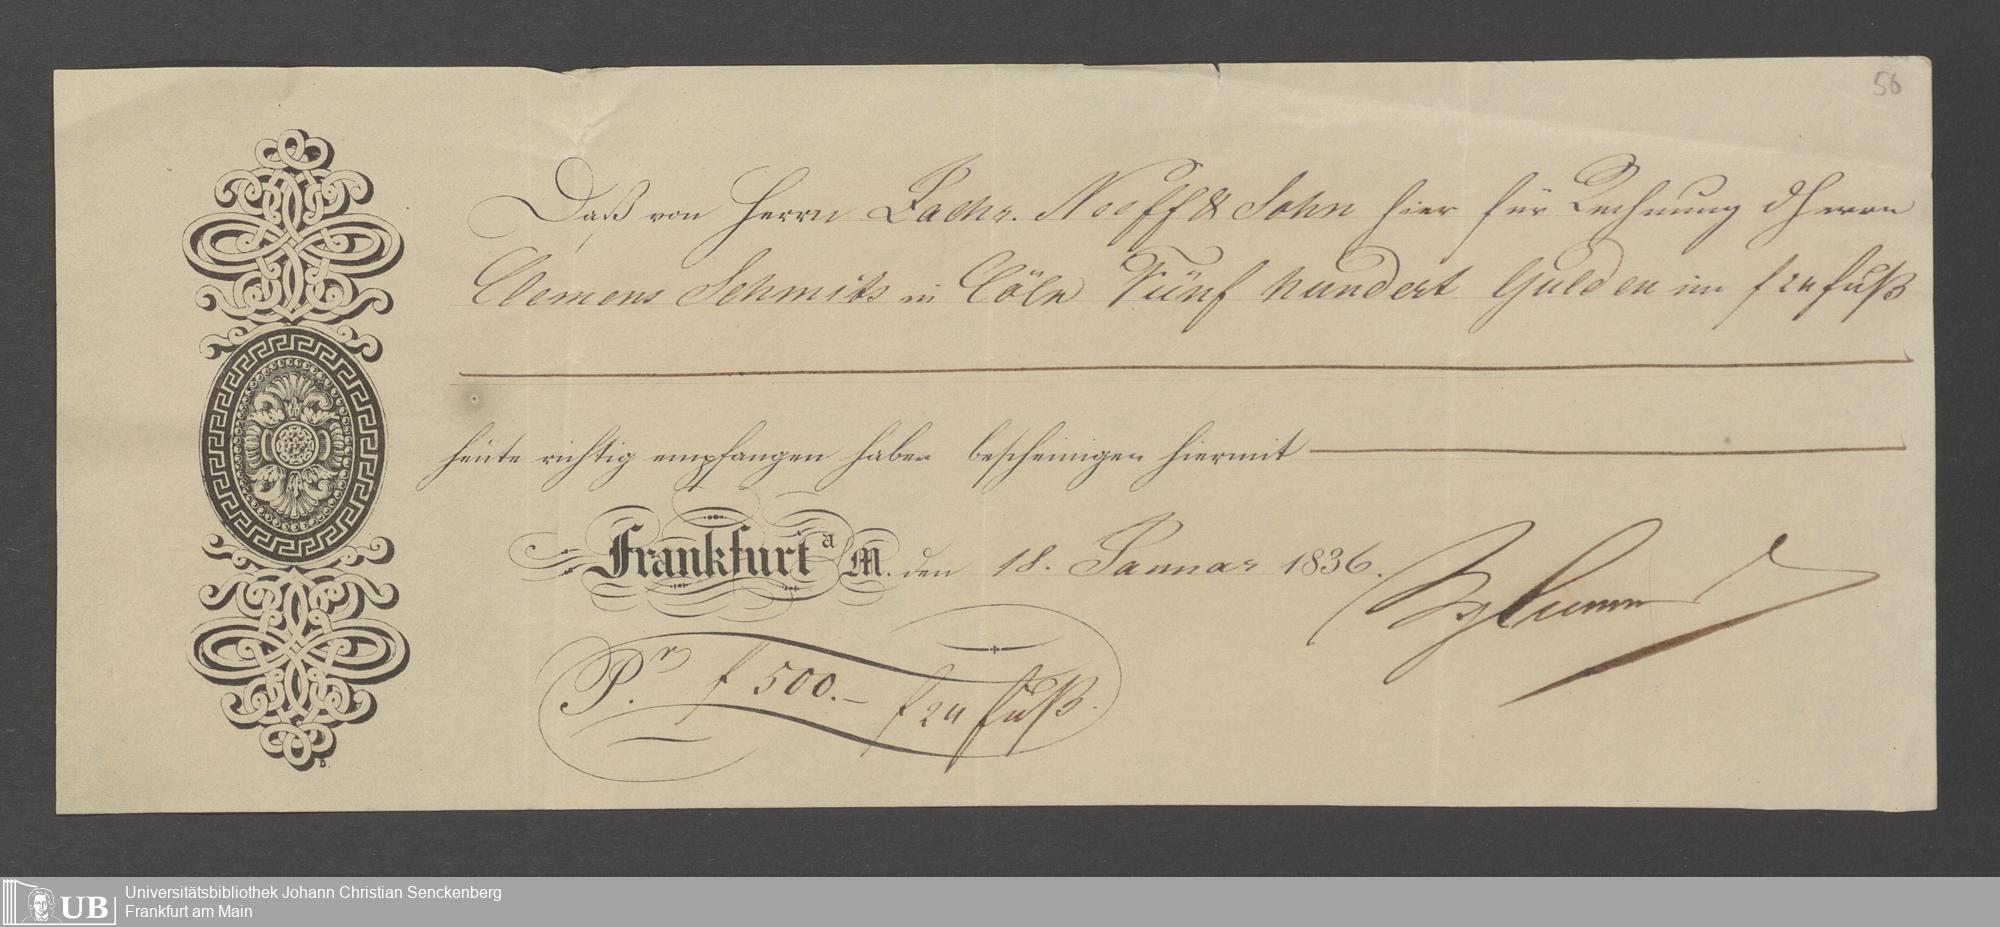 56
Daß von Herrn Zachr. Neeff & Sohn hier für Rechnung d Herrn
Clemens Schmits in Cöln Fünf hundert Gulden im f 24 fuß
heute richtig empfangen haben bescheinigen hiermit
Frankfurt a M. den 18. Januar 1836.
Pr f 500.– f 24 fuß.
D.
UB Universitätsbibliothek Johann Christian Senckenberg
Frankfurt am Main